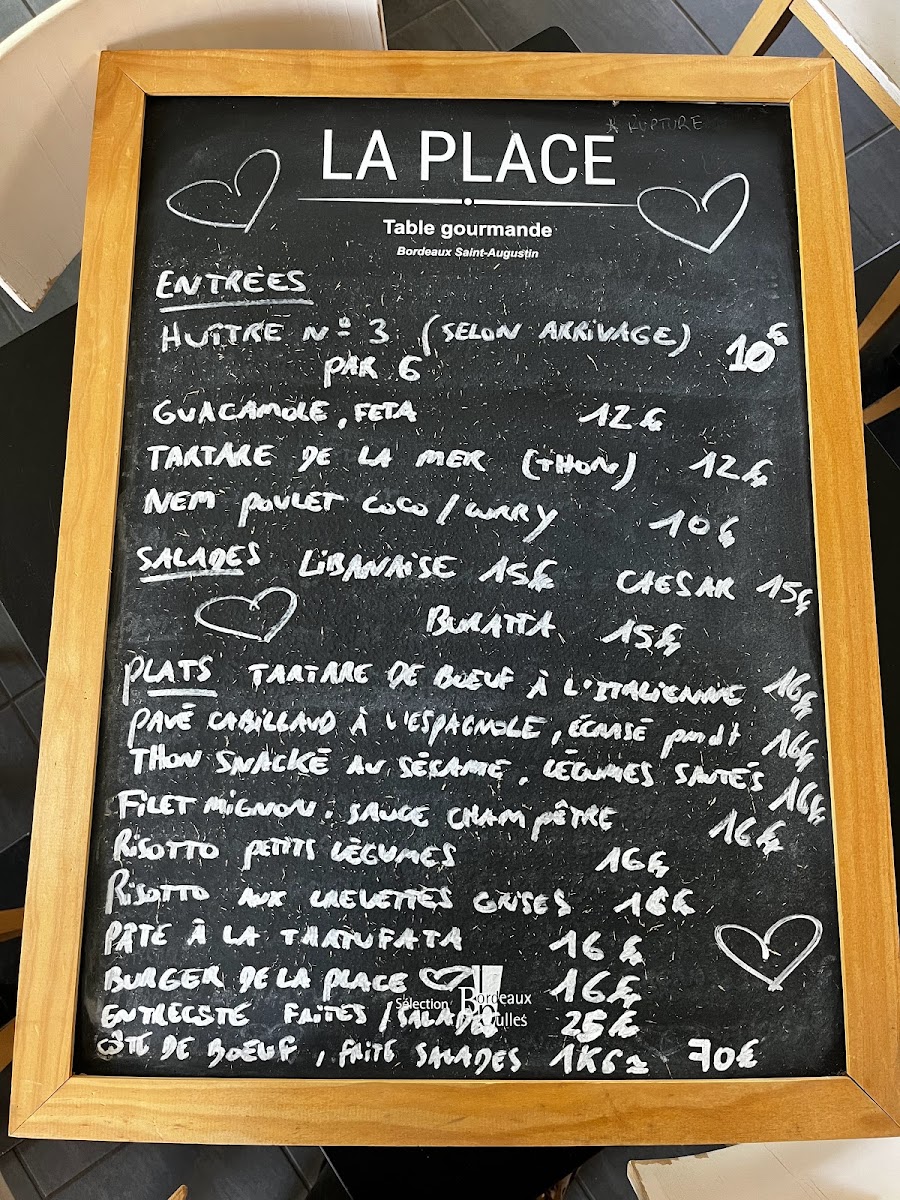 * RUPTURE
LA PLACE
Table gourmande
Bordeaux Saint-Augustin
ENTRÈES
HUÎTRE Nº 3 (SELON ARRIVAGE) 10€
PAR 6
GUACAMOLE, FETA 12€
TARTARE DE LA MER (THON) 12€
NEM POULET COCO/CURRY 10€
SALADES LIBANAISE 15€ CAESAR 15€
BURATTA 15€
PLATS TARTARE DE BŒUF À L'ITALIENNE 16€
PAVÉ CABILLAUD À L'ESPAGNOLE, ÉCRASÉ pmdt 16€
THON SNACKÉ AU SÉSAME, LÉGUMES SAUTÉS 16€
FILET MIGNON. SAUCE CHAMPÊTRE 16€
RISOTTO PETITS LÉGUMES 16€
RISOTTO AUX CREVETTES GRISES 16€
PÂTE À LA TARTUFATA 16€
BURGER DE LA PLACE 16€
Sélection Bordeaux
ENTRECOTE FRITES/SALADES 25€
CÔTE DE BOEUF, FRITE SALADES 1KG2 70€